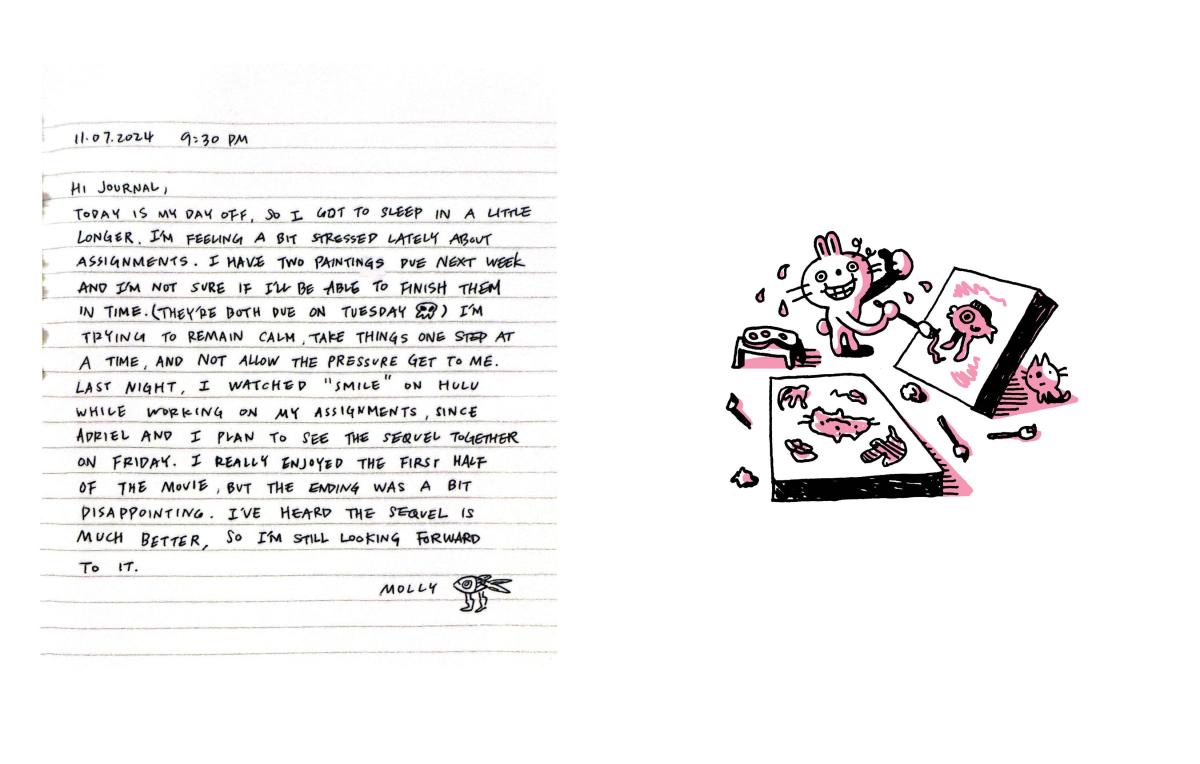 11.07.2024 9:30 PM
HI JOURNAL,
TODAY IS MY DAY OFF, SO I GOT TO SLEEP IN A LITTLE
LONGER. I'M FEELING A BIT STRESSED LATELY ABOUT
ASSIGNMENTS. I HAVE TWO PAINTINGS DUE NEXT WEEK
AND I'M NOT SURE IF I'LL BE ABLE TO FINISH THEM
IN TIME. (THEY'RE BOTH DUE ON TUESDAY ) I'M
TRYING TO REMAIN CALM, TAKE THINGS ONE STEP AT
A TIME, AND NOT ALLOW THE PRESSURE GET TO ME.
LAST NIGHT, I WATCHED "SMILE" ON HULU
WHILE WORKING ON MY ASSIGNMENTS, SINCE
ADRIEL AND I PLAN TO SEE THE SEQUEL TOGETHER
ON FRIDAY. I REALLY ENJOYED THE FIRST HALF
OF THE MOVIE, BUT THE ENDING WAS A BIT
DISAPPOINTING. I'VE HEARD THE SEQUEL IS
MUCH BETTER, SO I'M STILL LOOKING FORWARD
TO IT.
MOLLY